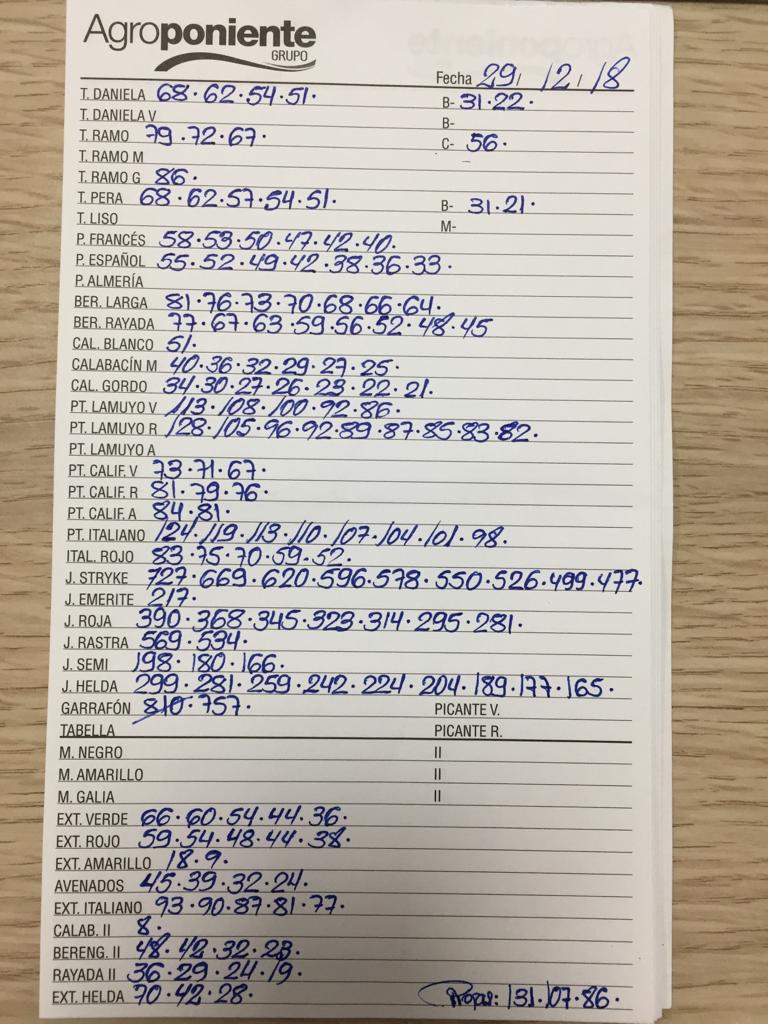 Agroponiente
GRUPO
Fecha 29/12/18
T. DANIELA 68·62·54·51· B- 31·22·
T. DANIELA V B-
T. RAMO 79·72·67· C- 56·
T. RAMO M
T. RAMO G 86·
T. PERA 68·62·57·54·51· B- 31·21·
T. LISO M-
P. FRANCÉS 58·53·50·47·42·40·
P. ESPAÑOL 55·52·49·42·38·36·33·
P. ALMERÍA
BER. LARGA 81·76·73·70·68·66·64·
BER. RAYADA 77·67·63·59·56·52·48·45
CAL. BLANCO 51·
CALABACÍN M 40·36·32·29·27·25·
CAL. GORDO 34·30·27·26·23·22·21·
PT. LAMUYO V 113·108·100·92·86·
PT. LAMUYO R 128·105·96·92·89·87·85·83·82·
PT. LAMUYO A
PT. CALIF. V 73·71·67·
PT. CALIF. R 81·79·76·
PT. CALIF. A 84·81·
PT. ITALIANO 124·119·113·110·107·104·101·98·
ITAL. ROJO 83·75·70·59·52·
J. STRYKE 727·669·620·596·578·550·526·499·477·
J. EMERITE 217·
J. ROJA 390·368·345·323·314·295·281·
J. RASTRA 569·534·
J. SEMI 198·180·166·
J. HELDA 299·281·259·242·224·204·189·177·165·
GARRAFÓN 810·757· PICANTE V.
TABELLA PICANTE R.
M. NEGRO II
M. AMARILLO II
M. GALIA II
EXT. VERDE 66·60·54·44·36·
EXT. ROJO 59·54·48·44·38·
EXT. AMARILLO 18·9·
AVENADOS 45·39·32·24·
EXT. ITALIANO 93·90·87·81·77·
CALAB. II 8·
BERENG. II 48·42·32·23·
RAYADA II 36·29·24·19·
EXT. HELDA 70·42·28· 131·107·86·